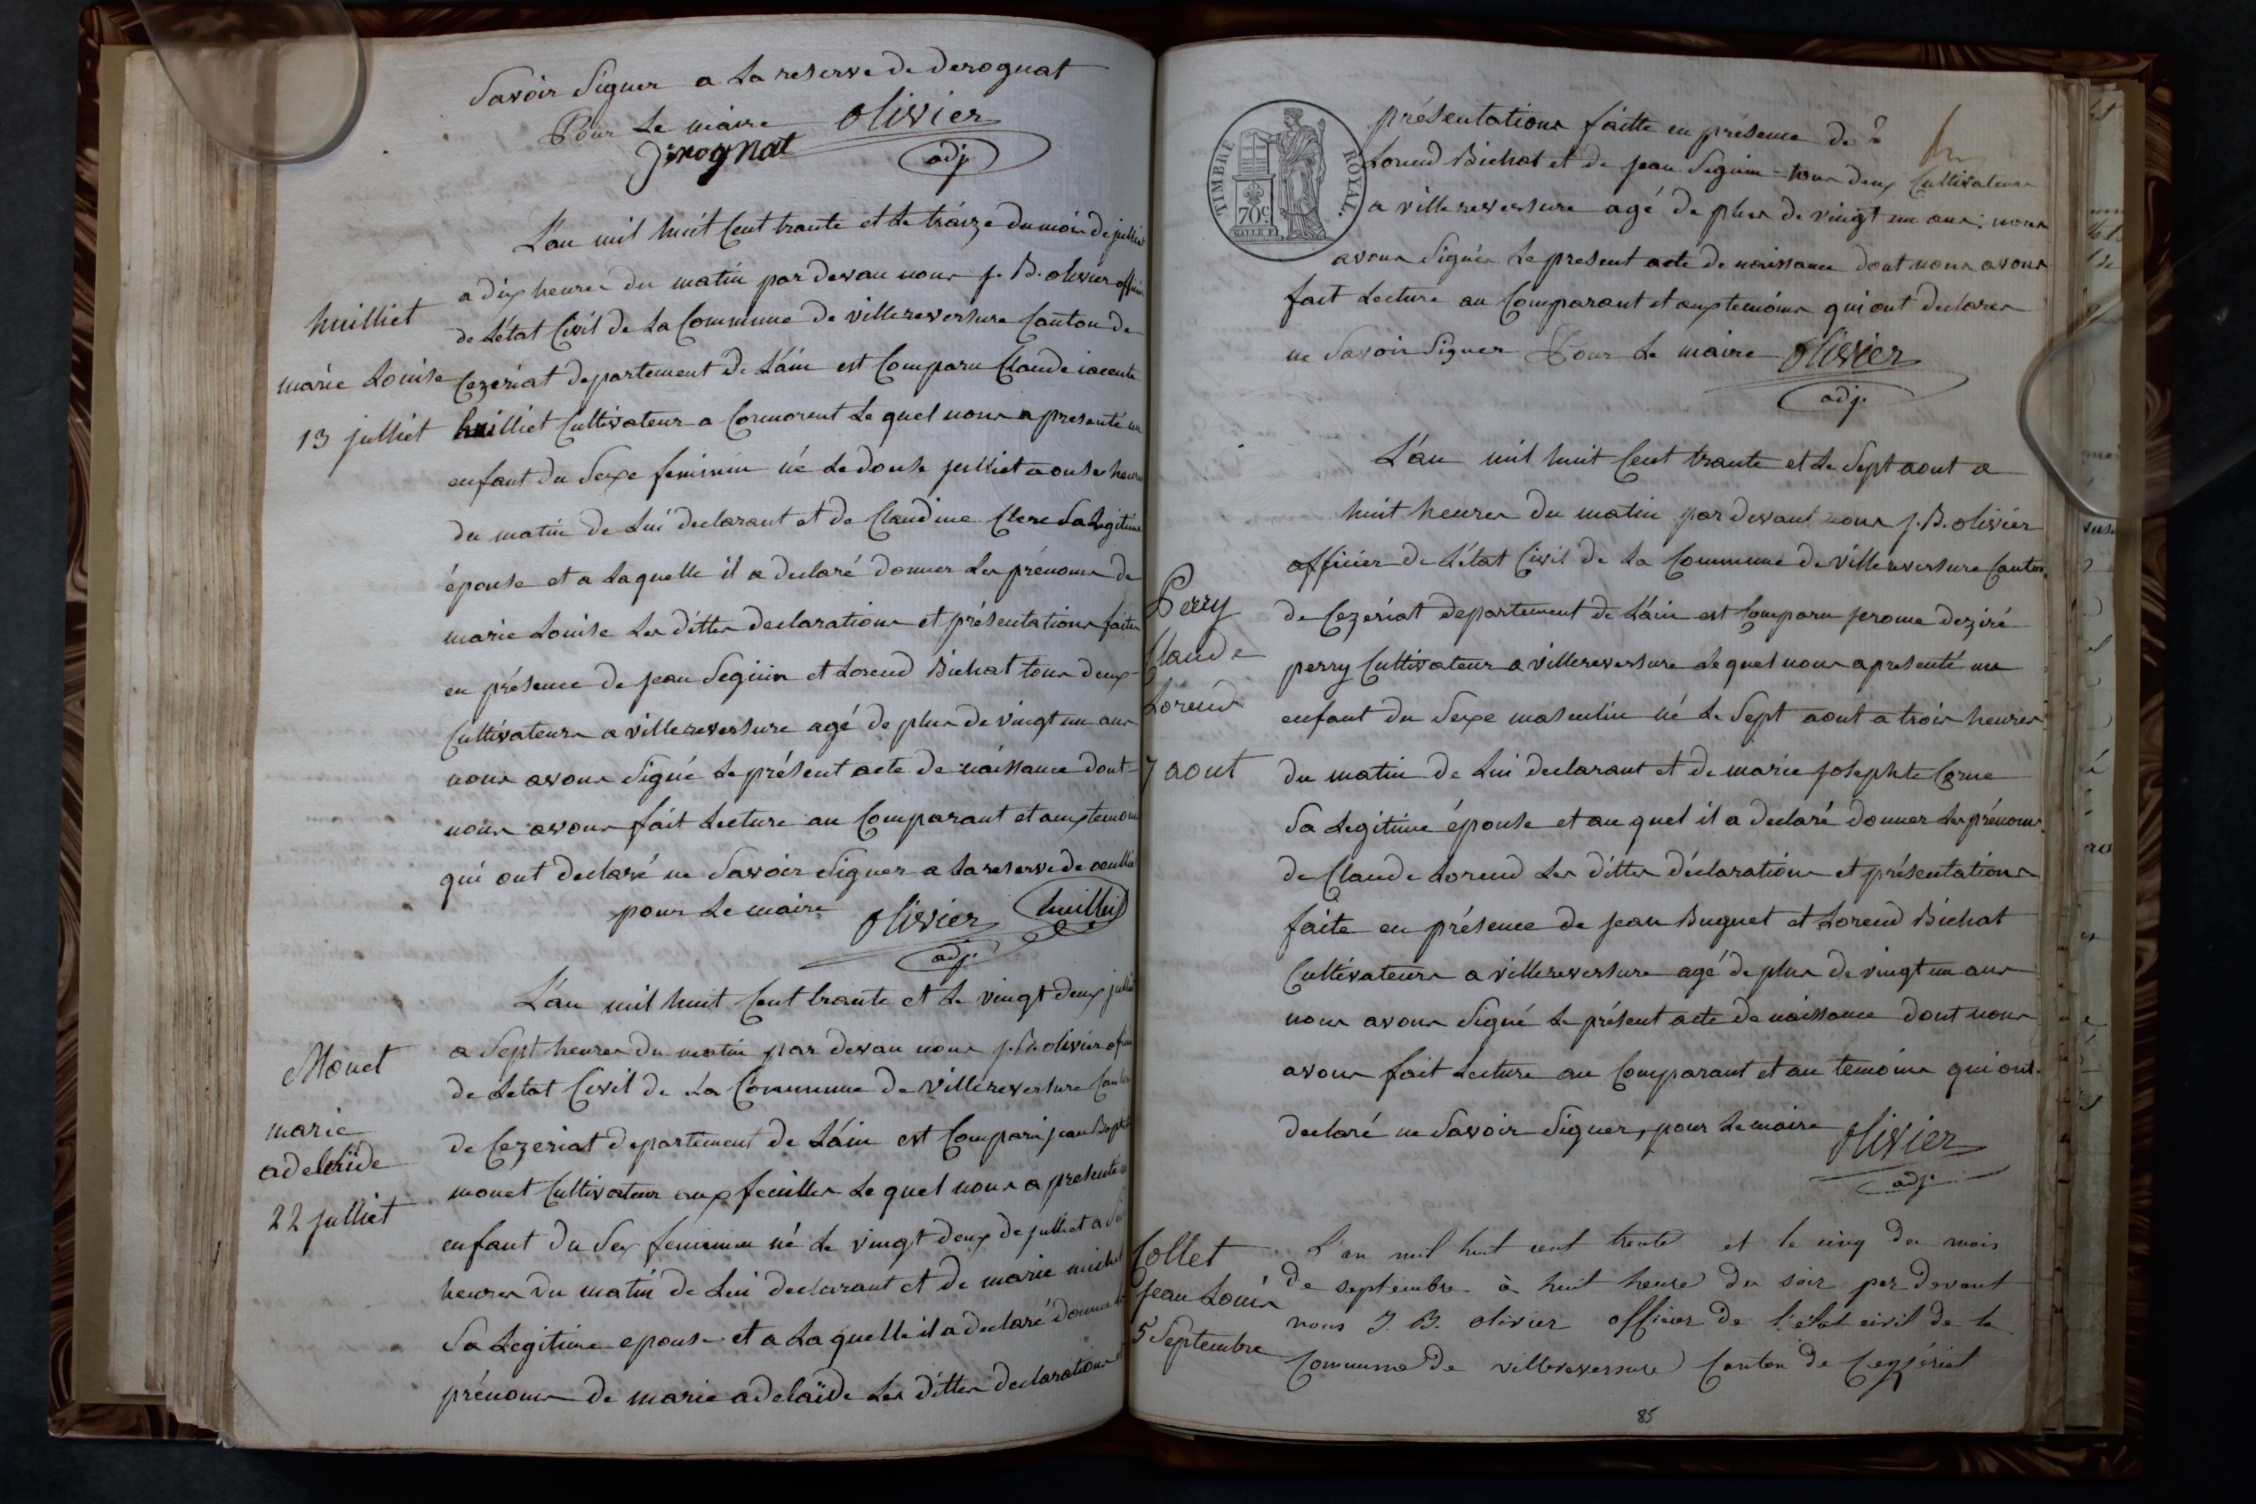 Savoir Signer a La reserve de derognat
Pour Le maire olivier
derognat adj.
L'an mil huit Cent trante et Le traize du moi de julliet
a dix heures du matin par devan nous j. B. olivier officier
huilliet
de L'état Civil de La Commune de villereversure Canton de
marie Louise
Cezeriat departement de L'ain est Comparu Claude
13 julliet
huilliet Cultivateur a Cormorent Le quel nous a presenté un
enfant du Sexe feminin né Le douse julliet a onse heures
du matin de Lui declarant et de Claudine Clere Sa Legitime
épouse et a Laquelle il a declaré donner Les prénoms de
marie Louise Les dittes declarations et présentations faites
en présence de jean Seguin et Lorend Bichat tous deux
Cultivateurs a villereversure agé de plus de vingt un ans
nous avons Signé Le présent acte de naissance dont
nous avons fait Lecture au Comparant et aux temoins
qui ont declaré ne Savoir Signer a La reserve de
pour Le maire olivier huilliet
adj.
L'an mil huit Cent trante et Le vingt deux julliet
Monet
a Sept heures du matin par devan nous j. B. olivier
de L'etat Civil de La Commune de villereversure Canton
marie
de Cezeriat departement de L'ain est Comparu jean Bapt
adelaïde
monet Cultivateur aux feuilles Le quel nous a presenté un
22 julliet
enfant du Sex feminin né Le vingt deux de julliet a
heures du matin de Lui declarant et de marie michel
Sa Legitime epouse et a La quelle il a declaré donner
prénoms de marie adelaïde Les dittes declarations
TIMBRE ROYAL.
70c
présentations faitte en présence de
Lorend Bichat et de jean Seguin tous deux Cultivateurs
a villereversure agé de plus de vingt un ans: nous
avons Signés Le present acte de naissance dont nous avons
fait Lecture au Comparant et aux temoins qui ont declarer
ne Savoir Signer Pour Le maire olivier
adj.
L'an mil huit Cent trante et Le Sept aout a
huit heures du matin par devant nous j. B. olivier
officier de L'état Civil de La Commune de villereversure Canton
Perry
de Cezériat departement de L'ain est Comparu jerome deziré
Claude
perry Cultivateur a villereversure Le quel nous a presenté un
Lorend
enfant du Sexe masculin né Le Sept aout a trois heures
7 aout
du matin de Lui declarant et de marie josephte
Sa Legitime épouse et au quel il a declaré donner Les prénoms
de Claude Lorend Les dittes déclarations et présentations
faite en présence de jean Buguet et Lorend Bichat
Cultivateurs a villereversure agé de plus de vingt un ans
nous avons Signé Le présent acte de naissance dont nous
avons fait Lecture au Comparant et au temoins qui ont
declaré ne Savoir Signer, pour Le maire olivier
adj.
Collet
L'an mil huit cent trente et le cinq du mois
jean Louis
de septembre à huit heures du soir par devant
5 Septembre
nous J. B. olivier officier de l'état civil de la
Commune de villereversure Canton de Ceyzériat
85